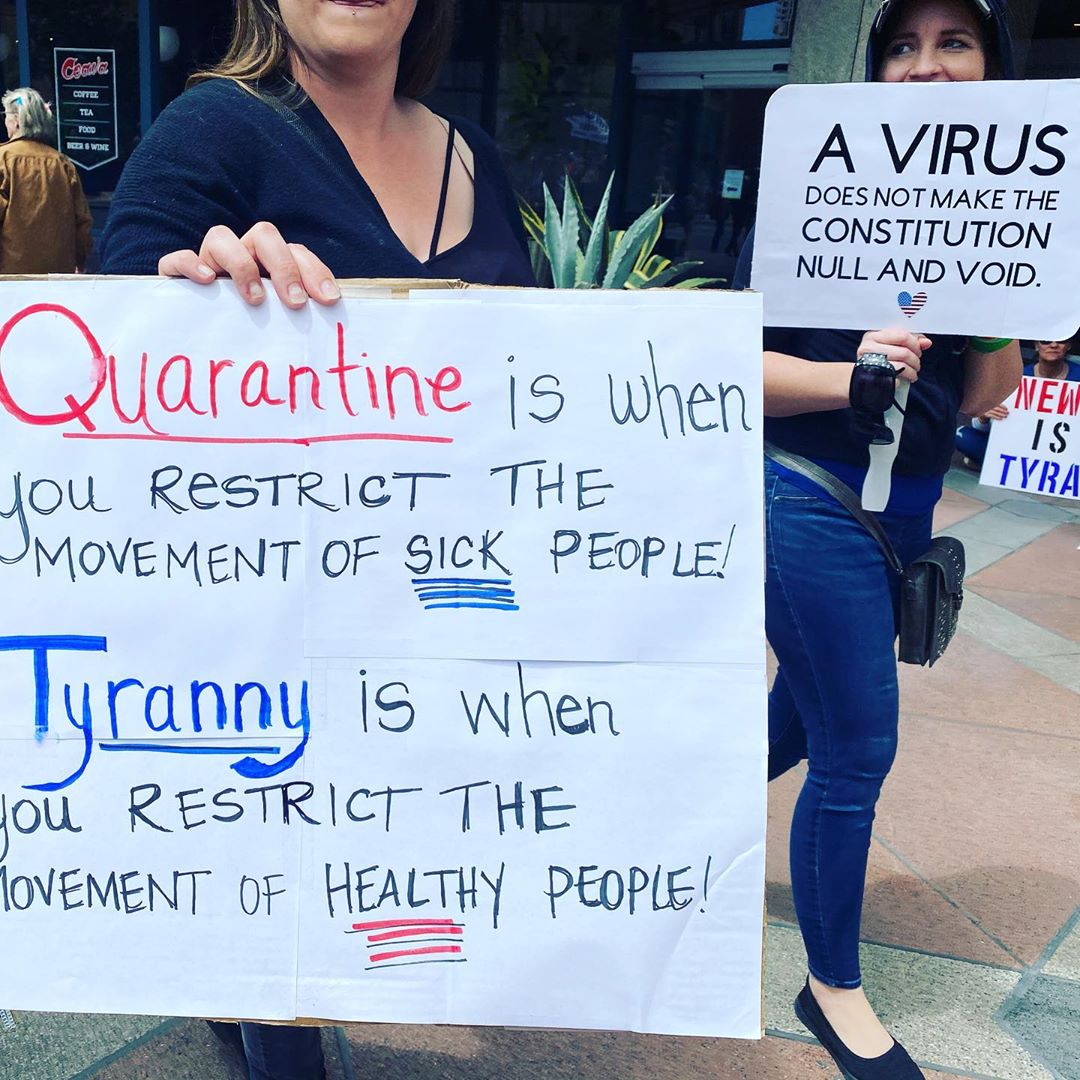 COFFEE
TEA
FOOD
BEER & WINE
A VIRUS
DOES NOT MAKE THE
CONSTITUTION
NULL AND VOID.
Quarantine is when
you RESTRICT THE
MOVEMENT OF SICK PEOPLE!
Tyranny is when
you RESTRICT THE
MOVEMENT OF HEALTHY PEOPLE!
NEW
IS
TYRA